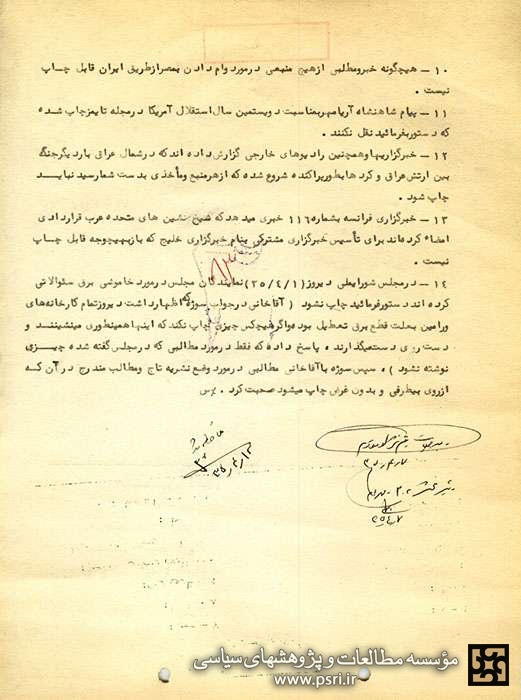 ۱۰ – هیچگونه خبرومطلبی ازهیچ منبعی درمورد وام دادن بمصرازطریق ایران قابل چاپ
نیست .
۱۱ – پیام شاهنشاه آریامهربمناسبت دویستمین سال استقلال آمریکا درمجله تایمزچاپ شده
که دستوربفرمائید نقل نکنند .
۱۲ – خبرگزاریهاوهمچنین رادیوهای خارجی گزارش داده اندکه درشمال عراق باردیگرجنگ
بین ارتش عراق و کردهابطورپراکنده شروع شده که ازهرمنبع ومأخذی بدست شمارسید نبایـد
چاپ شود .
۱۳ – خبرگزاری فرانسه بشماره ۱۱۶ خبری میدهدکه شیخ نشین های متحده عرب قراردادی
امضاء کرده‌اند برای تأسیس خبرگزاری مشترکی بنام خبرگزاری خلیج که بازبهیچوجه قابل چـاپ
نیست .
۱۴ – درمجلس شورایملی دیروز (۳۵/۴/۱) نمایندگان مجلس درمورد خاموشی برق سئوالاتی
کرده اند دستورفرمائید چاپ نشود ( آقاخانی درجواب سوژه اظهارداشت دیروزتمام کارخانه‌های
ورامین بعلت قطع برق تعطیل بود واگرهیچکس چیزی چاپ نکند که اینهاهمینطوری مینشیننـد و
دست روی دست میگذارند ، پاسخ داد که فقط درمورد مطالبی که درمجلس گفته شده چیــزی
نوشته نشود ) ، سپس سوژه باآقاخانی مطالبی درمورد وضع نشریه تاج ومطالب مندرج درآن کـه
ازروی بیطرفی و بدون غرض چاپ میشود صحبت کرد .
مؤسسه مطالعات و پژوهشهای سیاسی
www.psri.ir